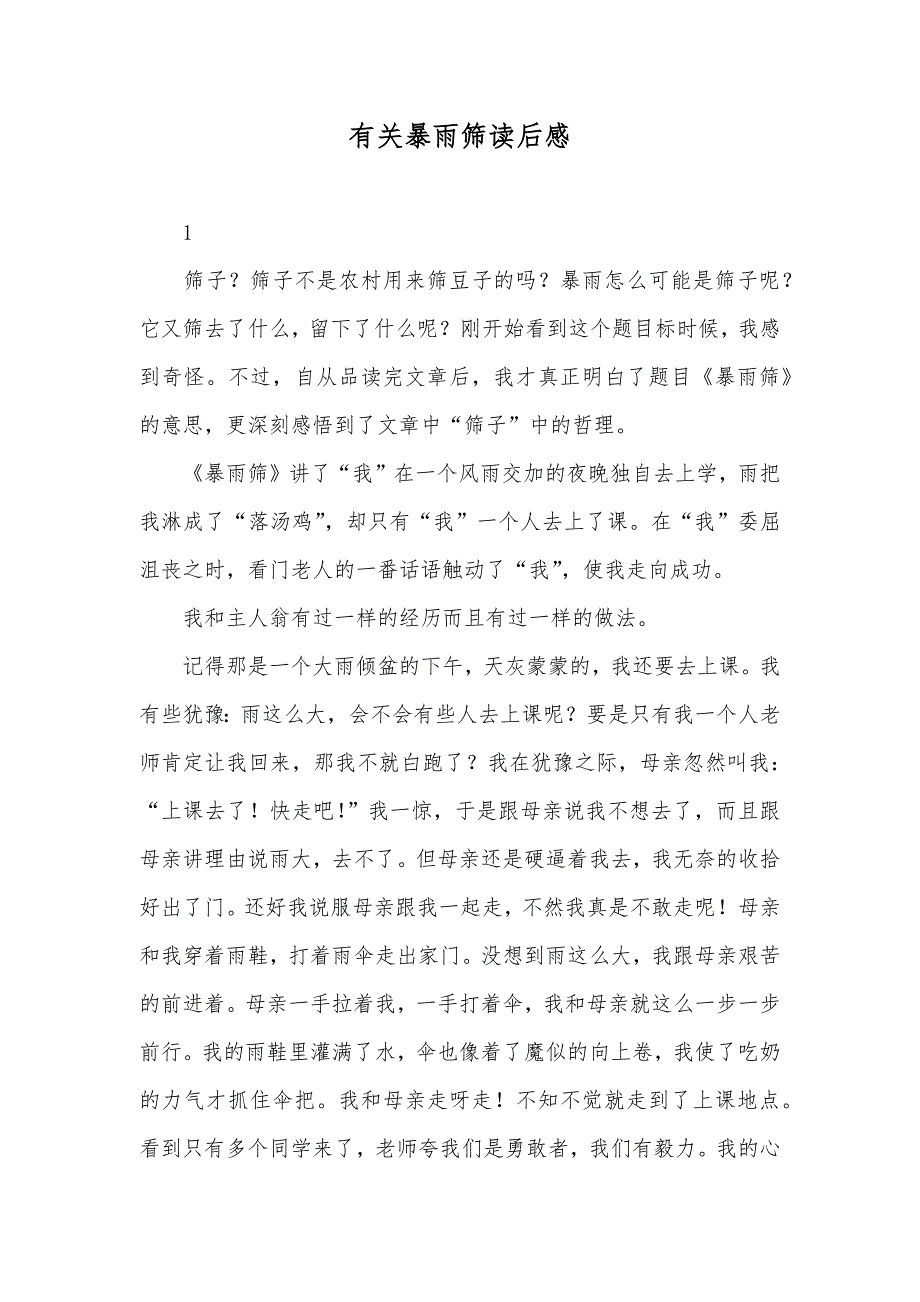 有关暴雨筛读后感
1
筛子？筛子不是农村用来筛豆子的吗？暴雨怎么可能是筛子呢？
它又筛去了什么，留下了什么呢？刚开始看到这个题目标时候，我感
到奇怪。不过，自从品读完文章后，我才真正明白了题目《暴雨筛》
的意思，更深刻感悟到了文章中“筛子”中的哲理。
《暴雨筛》讲了“我”在一个风雨交加的夜晚独自去上学，雨把
我淋成了“落汤鸡”，却只有“我”一个人去上了课。在“我”委屈
沮丧之时，看门老人的一番话语触动了“我”，使我走向成功。
我和主人翁有过一样的经历而且有过一样的做法。
记得那是一个大雨倾盆的下午，天灰蒙蒙的，我还要去上课。我
有些犹豫：雨这么大，会不会有些人去上课呢？要是只有我一个人老
师肯定让我回来，那我不就白跑了？我在犹豫之际，母亲忽然叫我：
“上课去了！快走吧！”我一惊，于是跟母亲说我不想去了，而且跟
母亲讲理由说雨大，去不了。但母亲还是硬逼着我去，我无奈的收拾
好出了门。还好我说服母亲跟我一起走，不然我真是不敢走呢！母亲
和我穿着雨鞋，打着雨伞走出家门。没想到雨这么大，我跟母亲艰苦
的前进着。母亲一手拉着我，一手打着伞，我和母亲就这么一步一步
前行。我的雨鞋里灌满了水，伞也像着了魔似的向上卷，我使了吃奶
的力气才抓住伞把。我和母亲走呀走！不知不觉就走到了上课地点。
看到只有多个同学来了，老师夸我们是勇敢者，我们有毅力。我的心